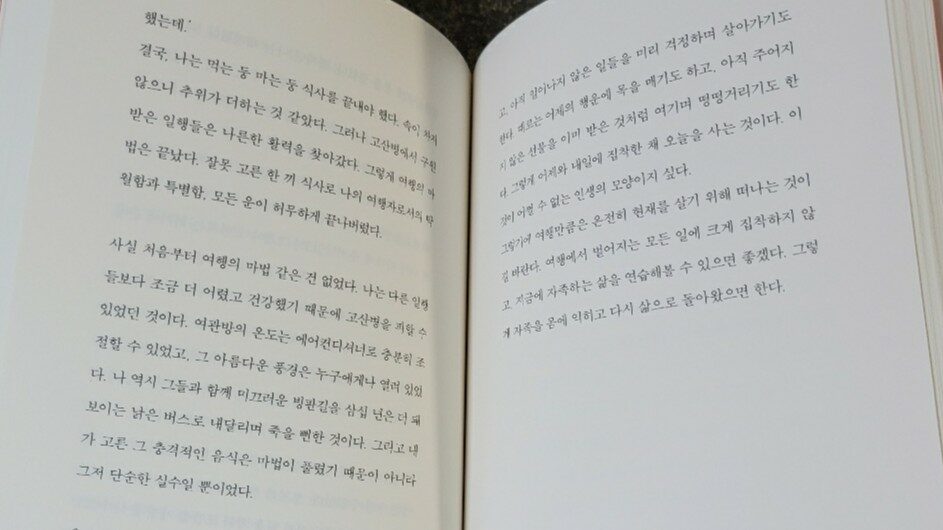 했는데.'
결국, 나는 먹는 둥 마는 둥 식사를 끝내야 했다. 속이 차지
않으니 추위가 더하는 것 같았다. 그러나 고산병에서 구원
받은 일행들은 나른한 활력을 찾아갔다. 그렇게 여행의 마
법은 끝났다. 잘못 고른 한 끼 식사로 나의 여행자로서의 탁
월함과 특별함, 모든 운이 허무하게 끝나버렸다.
사실 처음부터 여행의 마법 같은 건 없었다. 나는 다른 일행
들보다 조금 더 어렸고 건강했기 때문에 고산병을 피할 수
있었던 것이다. 여관방의 온도는 에어컨디셔너로 충분히 조
절할 수 있었고, 그 아름다운 풍경은 누구에게나 열려 있었
다. 나 역시 그들과 함께 미끄러운 빙판길을 삼십 년은 더 돼
보이는 낡은 버스로 내달리며 죽을 뻔한 것이다. 그리고 내
가 고른 그 충격적인 음식은 마법이 풀렸기 때문이 아니다
그저 단순한 실수일 뿐이었다.
고, 아직 일어나지 않은 일들을 미리 걱정하며 살아가기도
한다. 때로는 어제의 행운에 목을 메기도 하고, 아직 주어지
지 않은 선물을 이미 받은 것처럼 여기며 떵떵거리기도 한
다. 그렇게 어제와 내일에 집착한 채 오늘을 사는 것이다. 이
것이 어쩔 수 없는 인생의 모양이지 싶다.
그렇기에 여행만큼은 온전히 현재를 살기 위해 떠나는 것이
길 바란다. 여행에서 벌어지는 모든 일에 크게 집착하지 않
고 지금에 자족하는 삶을 연습해볼 수 있으면 좋겠다. 그렇
게 자족을 몸에 익히고 다시 삶으로 돌아왔으면 한다.